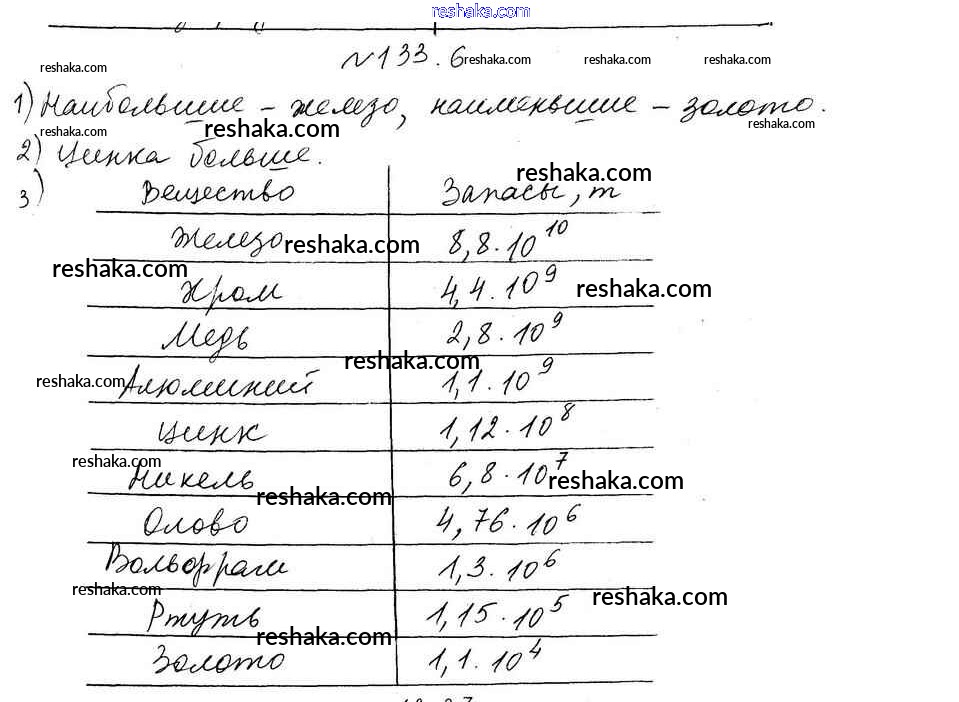 reshaka.com
№133.6 reshaka.com reshaka.com reshaka.com
reshaka.com
1) Наибольшие – железо, наименьшие – золото.
reshaka.com reshaka.com reshaka.com
2) Цинка больше.
reshaka.com
3) Вещество Запасы, т
Железо reshaka.com 8,8·10^10
reshaka.com
Хром 4,4·10^9 reshaka.com
Медь 2,8·10^9
reshaka.com
reshaka.com Алюминий 1,1·10^9
Цинк 1,12·10^8
reshaka.com
Никель 6,8·10^7 reshaka.com
reshaka.com
Олово 4,76·10^6
Вольфрам 1,3·10^6
reshaka.com reshaka.com
Ртуть 1,15·10^5
reshaka.com
Золото 1,1·10^4